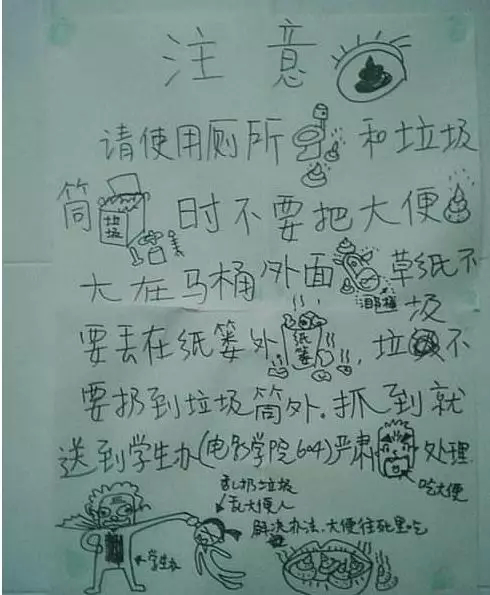 注意
请使用厕所和垃圾
筒时不要把大便
垃圾
大在马桶外面草纸不
马桶
要丢在纸篓外,垃圾不
纸篓
要扔到垃圾筒外.抓到就
送到学生办(电影学院604)严肃处理
吃大便
乱扔垃圾
乱大便人
解决办法.大便往死里吃
学生办